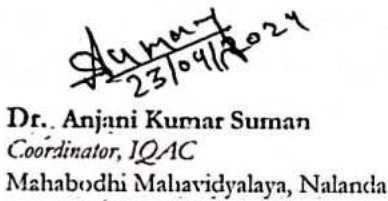 Suman
23/04/2024
Dr. Anjani Kumar Suman
Coordinator, IQAC
Mahabodhi Mahavidyalaya, Nalanda